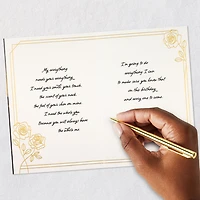 My everything
needs your everything,
I need your smile, your touch,
the scent of your neck,
the feel of your skin on mine.
I need the whole you
Because you will always have
the whole me.
I'm going to do
everything I can
to make sure you know that
on this birthday,
and every one to come.